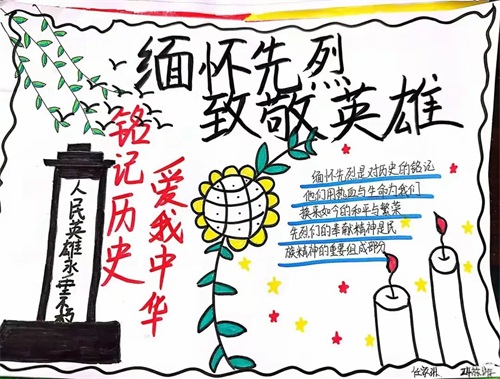 缅怀先烈
致敬英雄
铭记历史
爱我中华
人民英雄永垂不朽
缅怀先烈是对历史的铭记
他们用热血与生命为我们
换来如今的和平与繁荣
先烈们的奉献精神是民
族精神的重要组成部分